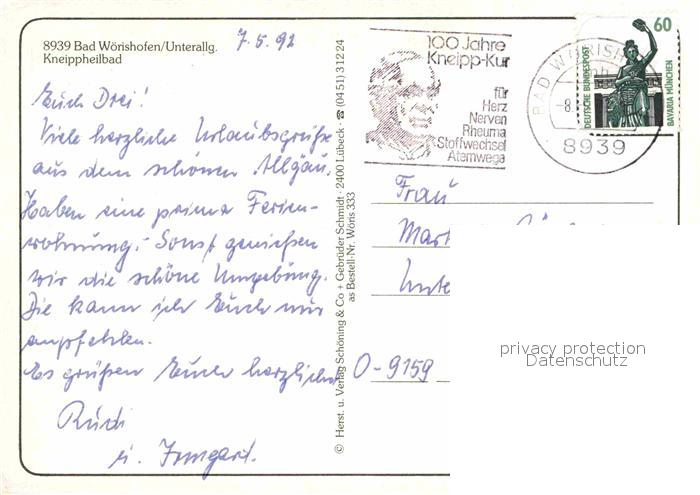 8939 Bad Wörishofen/Unterallg.
Kneippheilbad
7.5.92
Euch Drei!
Viele herzliche Urlaubsgrüße
aus dem schönen Allgäu.
Haben eine prima Ferien-
wohnung. Sonst genießen
wir die schöne Umgebung.
Die kann ich Euch nur
empfehlen.
Es grüßen Euch herzlichst
Rudi
u. Irmgard.
© Herst. u. Verlag Schöning & Co + Gebrüder Schmidt · 2400 Lübeck · ☎ (0451) 31224
as Bestell-Nr. Wöris 333
100 Jahre
Kneipp-Kur
für
Herz
Nerven
Rheuma
Stoffwechsel
Atemwege
BAD WÖRISH
-8.
8939
60
DEUTSCHE BUNDESPOST
BAVARIA MÜNCHEN
Frau
Mar
Unte
O-9159
privacy protection
Datenschutz